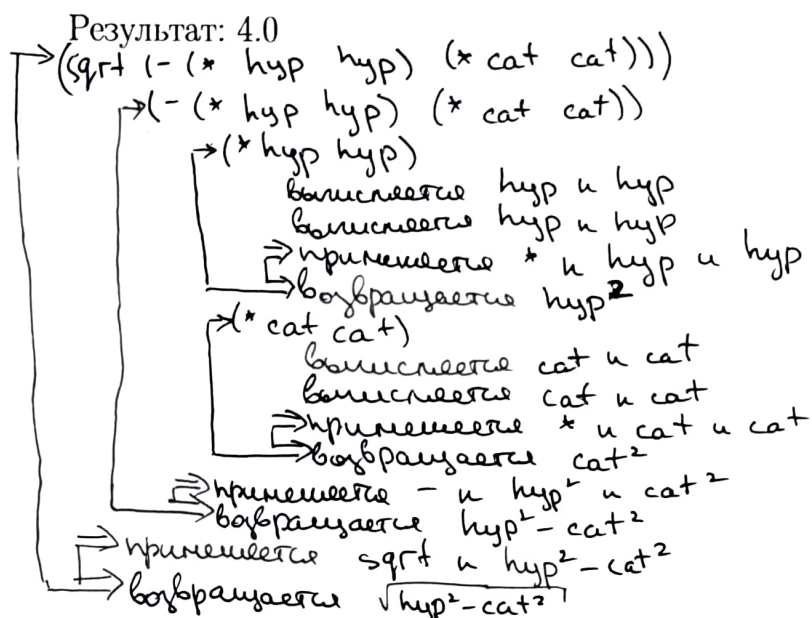 Результат: 4.0
(sqrt (- (* hyp hyp) (* cat cat)))
(- (* hyp hyp) (* cat cat))
(* hyp hyp)
вычисляется hyp к hyp
вычисляется hyp к hyp
применяется * к hyp и hyp
возвращается hyp²
(* cat cat)
вычисляется cat к cat
вычисляется cat к cat
применяется * к cat и cat
возвращается cat²
применяется - к hyp² и cat²
возвращается hyp² - cat²
применяется sqrt к hyp² - cat²
возвращается √hyp² - cat²